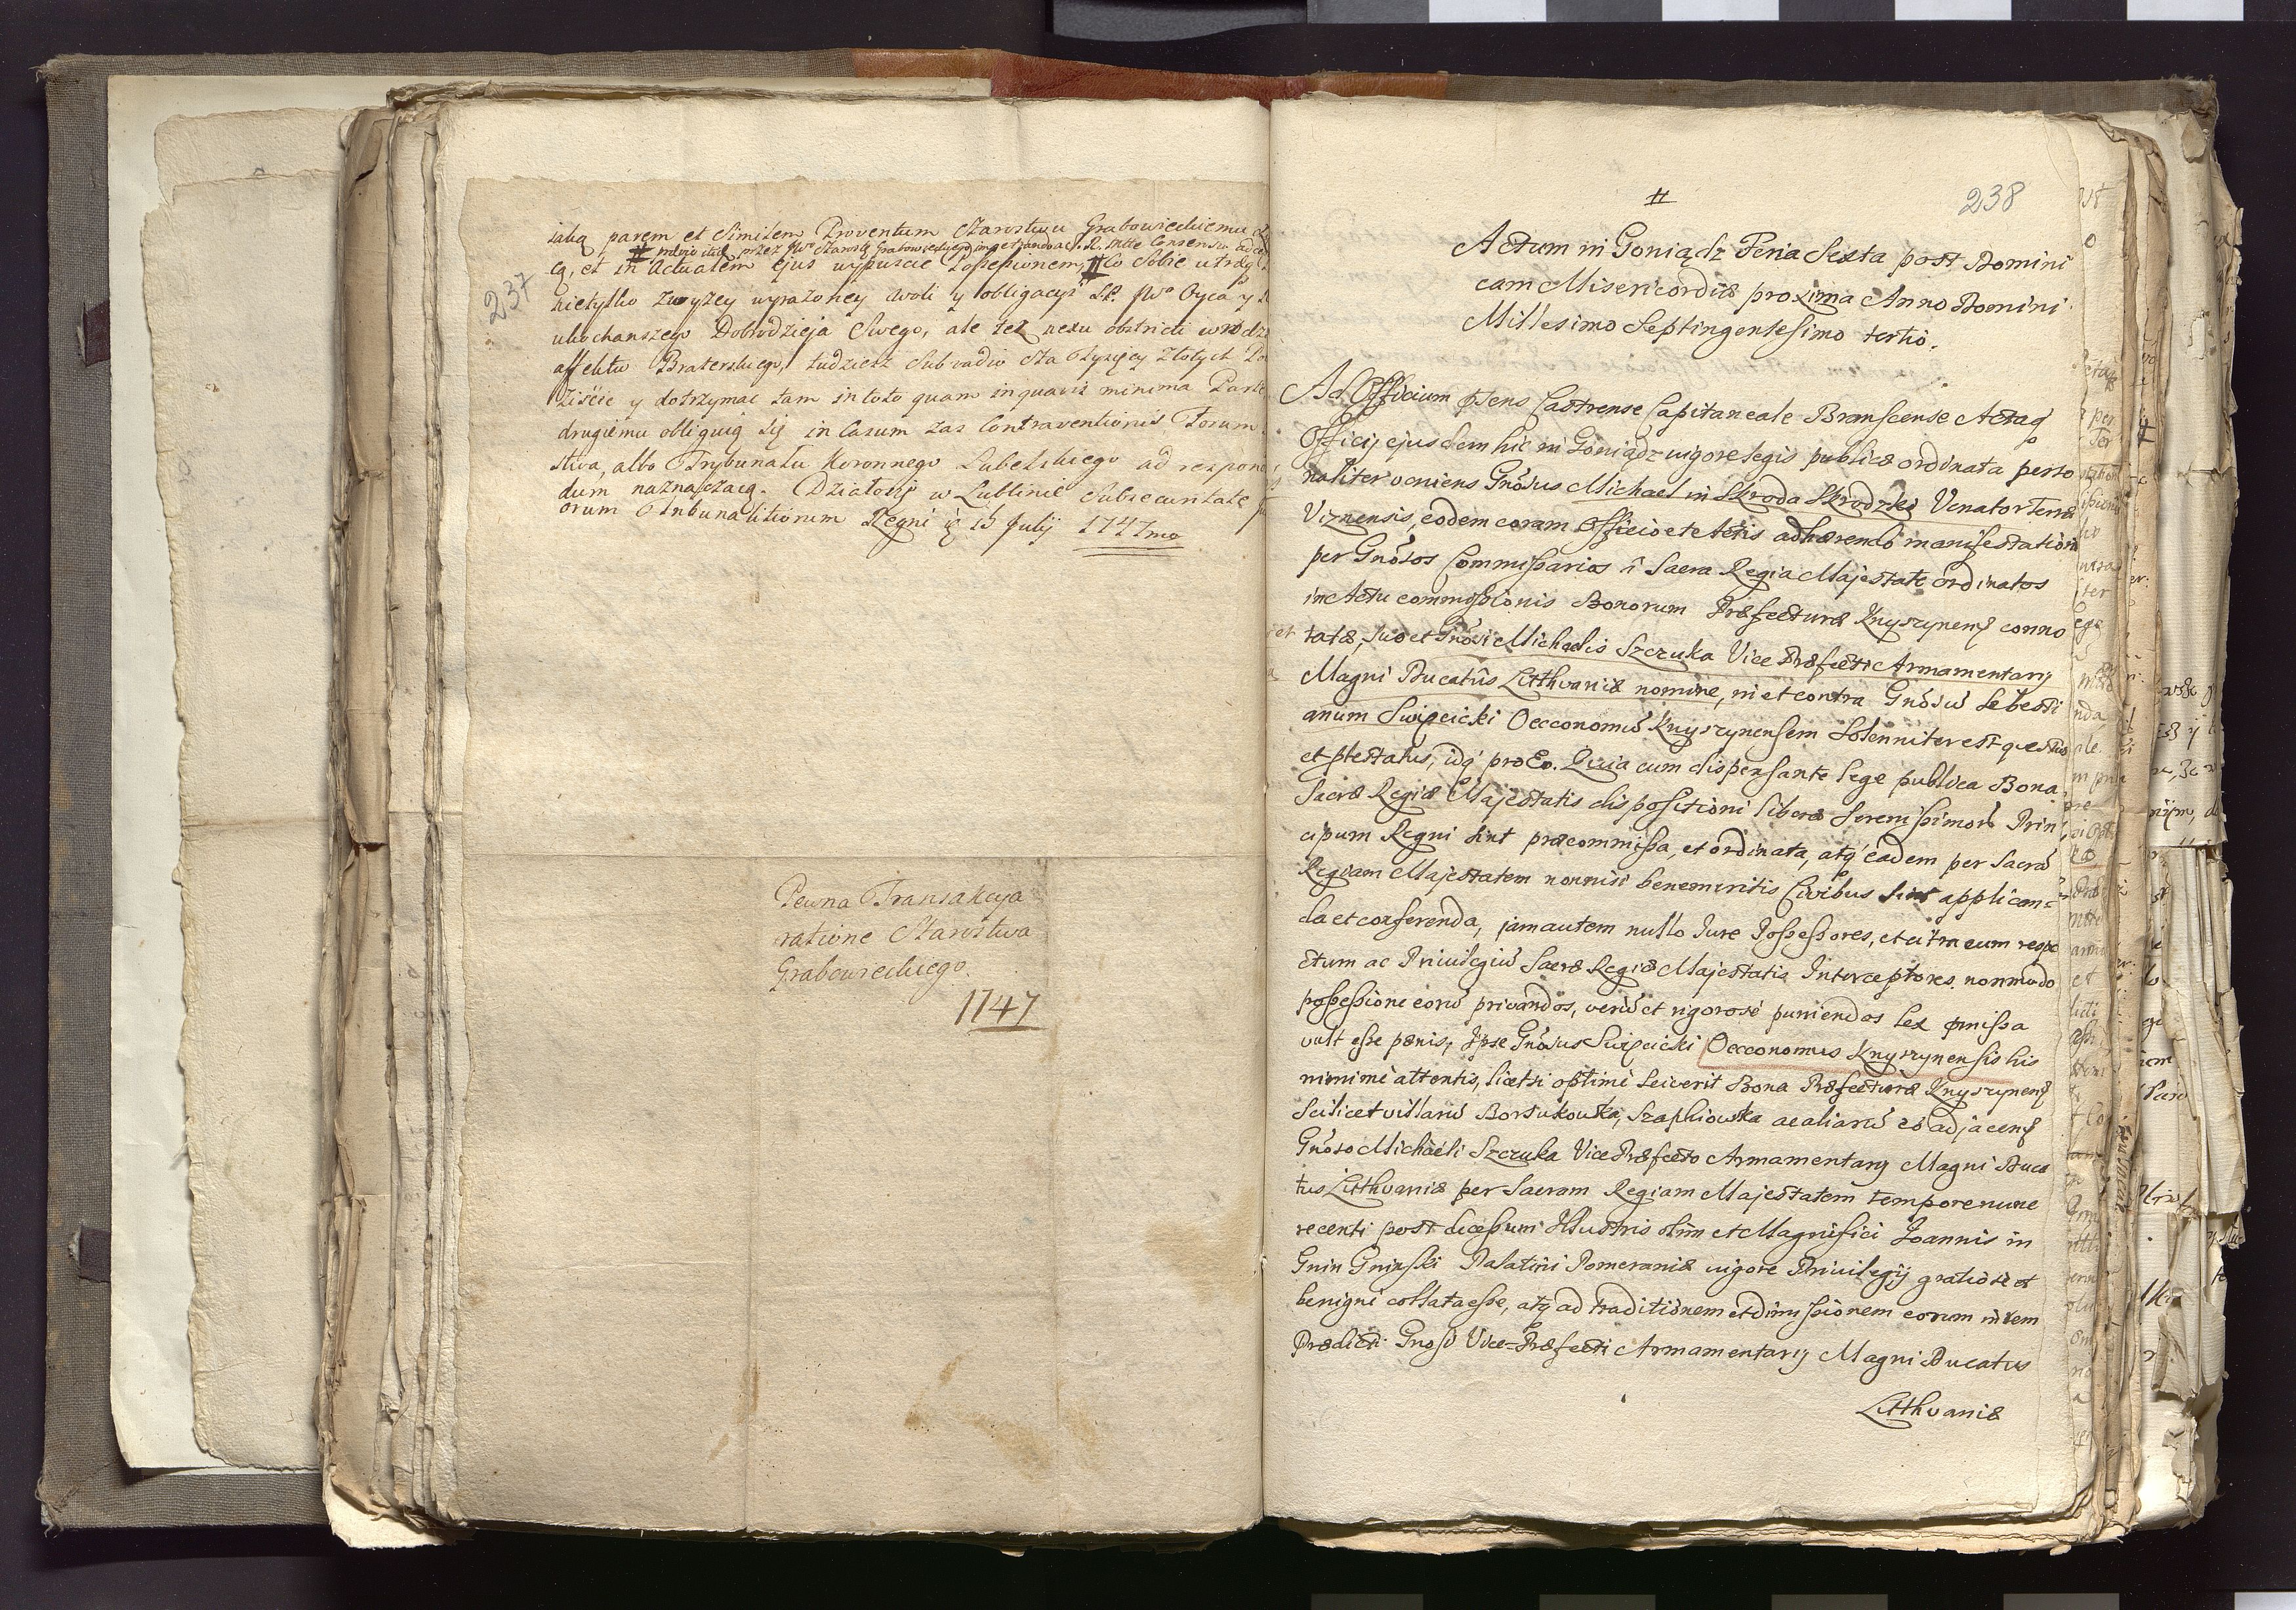 237
iaką parem et Similem Proventum Starostwu Grabowieckiemu
# przez JWo Starosty Grabowieckiego
et in Actualem ejus wypuscic Possessionem, # Co Sobie
nietylko zwyzey wyrażoney woli y obligacyi S.P. JWo Oyca y
ukochanszego Dobrodzieja Swego, ale też nexu obstricti
affektu Braterskiego, tudziesz sub vadio Sta Tysięcy Złotych
ziścić y dotrzymac tam in toto quam in quavis minima Parte
drugiemu obliguią się in Casum zas Contraventionis Forum
stwa, albo Trybunału Koronnego Lubelskiego ad respon
dum naznaczaią. Działosię w Lublinie sub securitate
orum Tribunalitiorum Regni 15 Julij 1747mo
Pewna Transakcya
ratione Starostwa
Grabowieckiego.
1747
#
238
Actum in Goniądz Feria Sexta post Domini
cam Misericordiæ proxima Anno Domini
Millesimo Septingentesimo tertio.
Ad Officium pſens Castrense Capitaneale Branscense Actaq
Officij ejusdem hic in Goniądz vigore legis publicæ ordinata perso
naliter veniens Gnosus Michael in Skroda Skrodzki Venator Terræ
Viznensis, eodem coram Officio et Actis adhærendo manifestationi
per Gnosos Commissarios a Sacra Regia Majestate ordinatos
in Actu commissionis Bonorum Præfecturæ Knyszynens conno
tatæ, suo et Gnosi Michaelis Szczuka Vice Præfecti Armamentarij
Magni Ducatus Litthvaniæ nomine, in et contra Gnosum Sebesti
anum Swięcicki Oecconomum Knyszynensem Solenniter est questus
et ptestatus, idq pro Eo. Quia cum dispensante lege publica Bona
Sacræ Regiæ Majestatis dispositioni liberæ Serenissimorum Prin
cipum Regni sint præcommissa, et ordinata, atq eadem per Sacram
Regiam Majestatem nonnisi benemeritis Civibus sint applican=
da et conferenda, jam autem nullo Jure Possessores, et citra eum respe
ctum ac Privilegium Sacræ Regiæ Majestatis Interceptores nonmodo
possessione eorum privandos, verum et rigorose puniendos lex pmissa
vult esse pænis, Ipse Gnosus Swięcicki Oecconomus Knyszynensis his
minime attentis, licetsi optime sciverit Bona Præfecturæ Knyszynens
Scilicet villarum Borsukowka, Szaphiowka ac aliarum eo adjacens
Gnoso Michaeli Szczuka Vice Præfecto Armamentarij Magni Duca
tus Litthvaniæ per Sacram Regiam Majestatem tempore nunc
recenti post decessum Illustris olim et Magnifici Joannis in
Gnin Gninski Palatini Pomeraniæ vigore Privilegij gratiose et
benigne collata esse, atq ad traditionem et dimissionem eorum in rem
Prædicti Gnosi Vice-Præfecti Armamentarij Magni Ducatus
Litthvaniæ